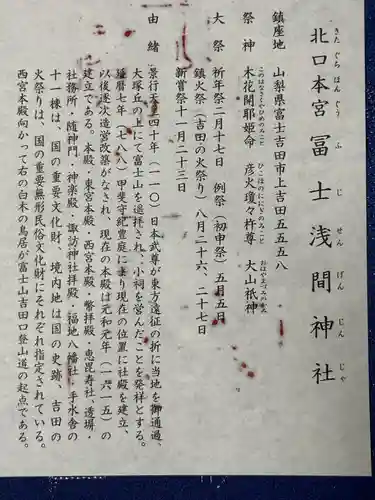 きたぐちほんぐうふじせんげんじんじゃ
北口本宮冨士浅間神社
鎮座地 山梨県富士吉田市上吉田五五五八
このはなさくやひめのみこと ひこほのににぎのみこと おほやまづみのかみ
祭神 木花開耶姫命 彦火瓊々杵尊 大山祗神
大祭 祈年祭二月十七日 例祭（初申祭）五月五日
鎮火祭（吉田の火祭り）八月二十六、二十七日
新嘗祭十一月二十三日
由緒 景行天皇四十年（一一〇）日本武尊が東方遠征の折に当地を御通過、
大塚丘の上にて富士山を遥拝され、小祠を営んだことを発祥とする。
延暦七年（七八八）甲斐守紀豊庭により現在の位置に社殿を建立、
以後逐次造営改築がなされ、現在の本殿は元和元年（一六一五）の
建立である。本殿・東宮本殿・西宮本殿・幣拝殿・恵毘寿社、透塀・
社務所・随神門、神楽殿・諏訪神社拝殿・福地八幡社、手水舎の
十一棟は、国の重要文化財、境内地は国の史跡、吉田の
火祭りは、国の重要無形民俗文化財にそれぞれ指定されている。
西宮本殿向かって右の白木の鳥居が富士山吉田口登山道の起点である。